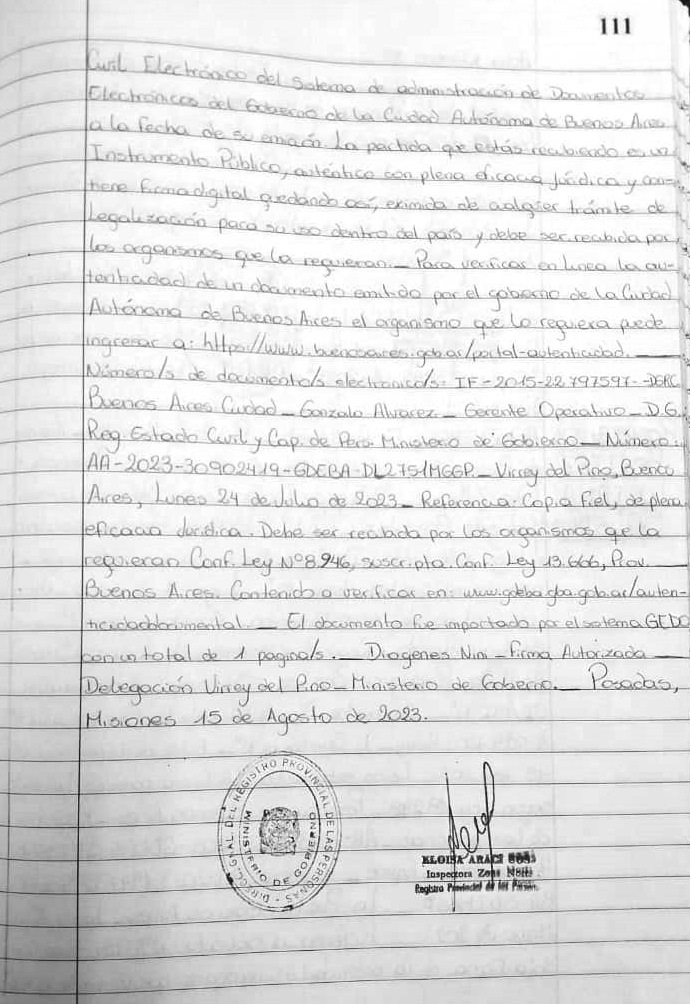 111
Civil Electrónico del Sistema de administración de Documentos
Electrónicos del Gobierno de la Ciudad Autónoma de Buenos Aires
a la fecha de su emación La partida que estás recibiendo es un
Instrumento Público, auténtico con plena eficacia jurídica y con-
tiene firma digital quedando así, eximida de cualqier trámite de
Legalización para su uso dentro del país y debe ser recibida por
los organismos que la requieran._ Para verificar en linea la au-
tenticidad de un documento emitido por el gobierno de la Ciudad
Autónoma de Buenos Aires el organismo que lo requiera puede
ingresar a: https//www.buenosaires.gob.ar/portal-autenticidad.
Número/s de documento/s electronico/s: IF-2015-22797597--DGRC
Buenos Aires Ciudad_ Gonzalo Alvarez_ Gerente Operativo_ D.G.
Reg Estado Civil y Cap. de Pers. Ministerio de Gobierno_ Número:
AA-2023-30902419-GDEBA-DL2751MGGP._ Virrey del Pino, Buenos
Aires, Lunes 24 de Julio de 2023_ Referencia: Copia Fiel, de plena
eficacia Jurídica. Debe ser recibida por los organismos qe la
requieran Conf. Ley Nº 8.946, suscripta. Conf. Ley 13.666, Prov.
Buenos Aires. Contenido a verificar en: www.gdeba.gba.gob.ar/auten-
ticidaddocumental._ El documento fue importado por el sistema GEDO
con un total de 1 pagina/s._ Diogenes Nini_ Firma Autorizada
Delegación Virrey del Pino_ Ministerio de Gobierno._ Posadas,
Misiones 15 de Agosto de 2023.
DIRECC. GRAL. DEL REGISTRO PROVINCIAL DE LAS PERSONAS
MINISTERIO DE GOBIERNO
ELOISA ARACI
Inspectora Zona
Registro Provincial de las Person.